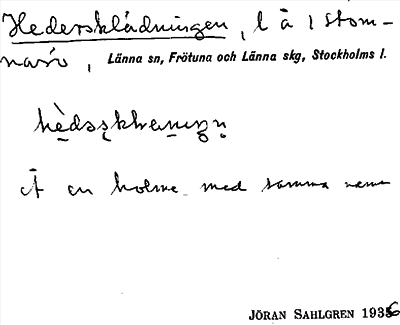 Hedersklädningen, l å 1 Stom-
narö, Länna sn, Frötuna och Länna skg, Stockholms l.
Å en holme med samma namn
JÖRAN SAHLGREN 1936